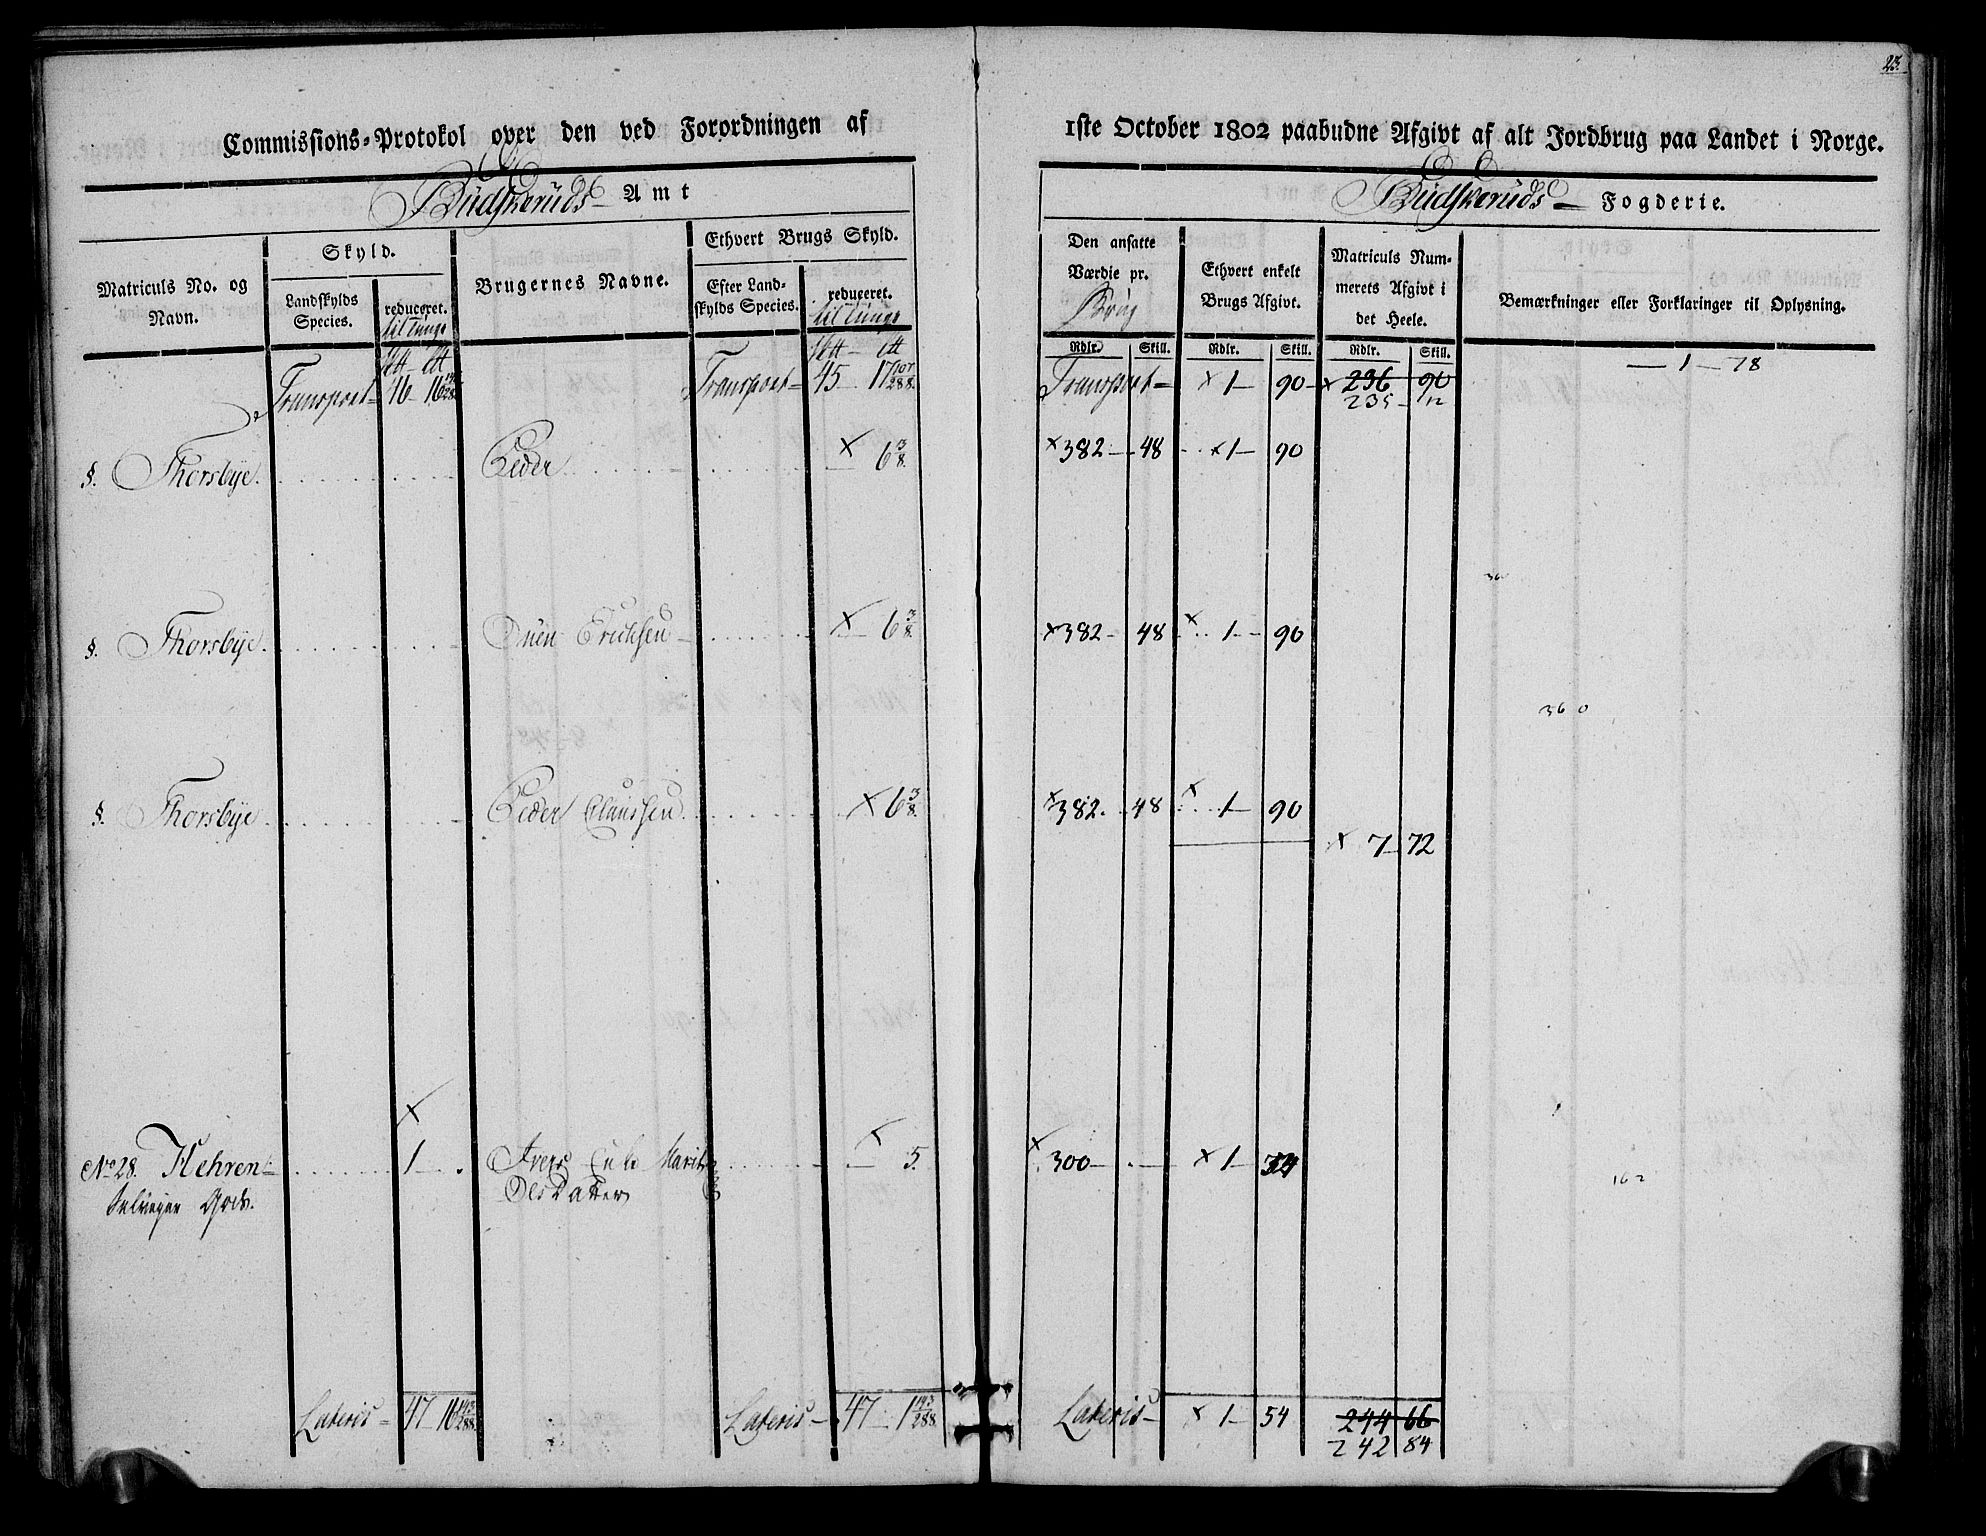 23.
Commissions-Protokol over den ved Forordningen af 1ste October 1802 paabudne Afgivt af alt Jordbrug paa Landet i Norge.
Budskeruds Amt
Budskeruds Fogderie.
Matriculs No. og Navn.
Skyld.
Landskylds Species.
reduceret.
til tunge
Brugernes Navne.
Ethvert Brugs Skyld.
Efter Landskylds Species.
reduceret.
til tunge
Den ansatte Værdie pr.
Brug
Ethvert enkelt Brugs Afgivt.
Matriculs Nummerets Afgivt i det Heele.
Bemærkninger eller Forklaringer til Oplysning.
Rdlr. Skill. Rdlr. Skill. Rdlr. Skill.
Transport 46 16 Transport 45 17 107/288 Transport x 1 90 x 236 90 1 78
235 12
§. Thorsbye Peder x 6 3/8. x 382 48 x 1 90
§. Thorsbye. Ouen Erichsen x 6 3/8. x 382 48 x 1 90
360
§. Thorsbye Peder Claussen x 6 3/8. x 382. 48 x 1 90
x 7 72
x
No 28. Hehren 1 Ivers Enke Marit x 5. x 300 x 1 54
Selveyer Gods. Olsdatter
162
Lateris 47 16 143/288 Lateris 47 1 143/288 Lateris x 1 54 244 66
242 84